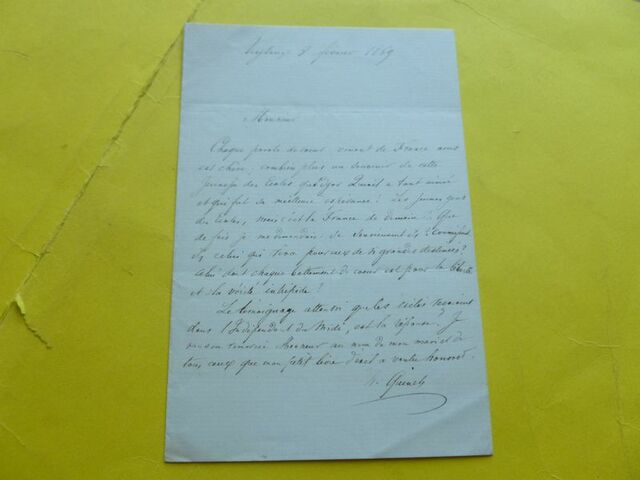 Veytaux 8 février 1869
Monsieur
Chaque parole de venant de France nous
est chère, combien plus un souvenir de cette
jeunesse des écoles qu'Edgar Quinet a tant aimée
et qui fut sa meilleure espérance! Les jeunes gens
des écoles, mais c'est la France de demain! Que
de fois je me demandais: Se souviennent-ils?
ils celui qui rêva pour eux de si grandes destinées?
Celui dont chaque battement de coeur est pour la liberté
et la vérité intrépide!
Le témoignage que
dans l'Indépendant du Midi, est la réponse! J
honneur au nom de mon mari et de
tous ceux que mon petit livre d'exil a voulu honorer.
Quinet